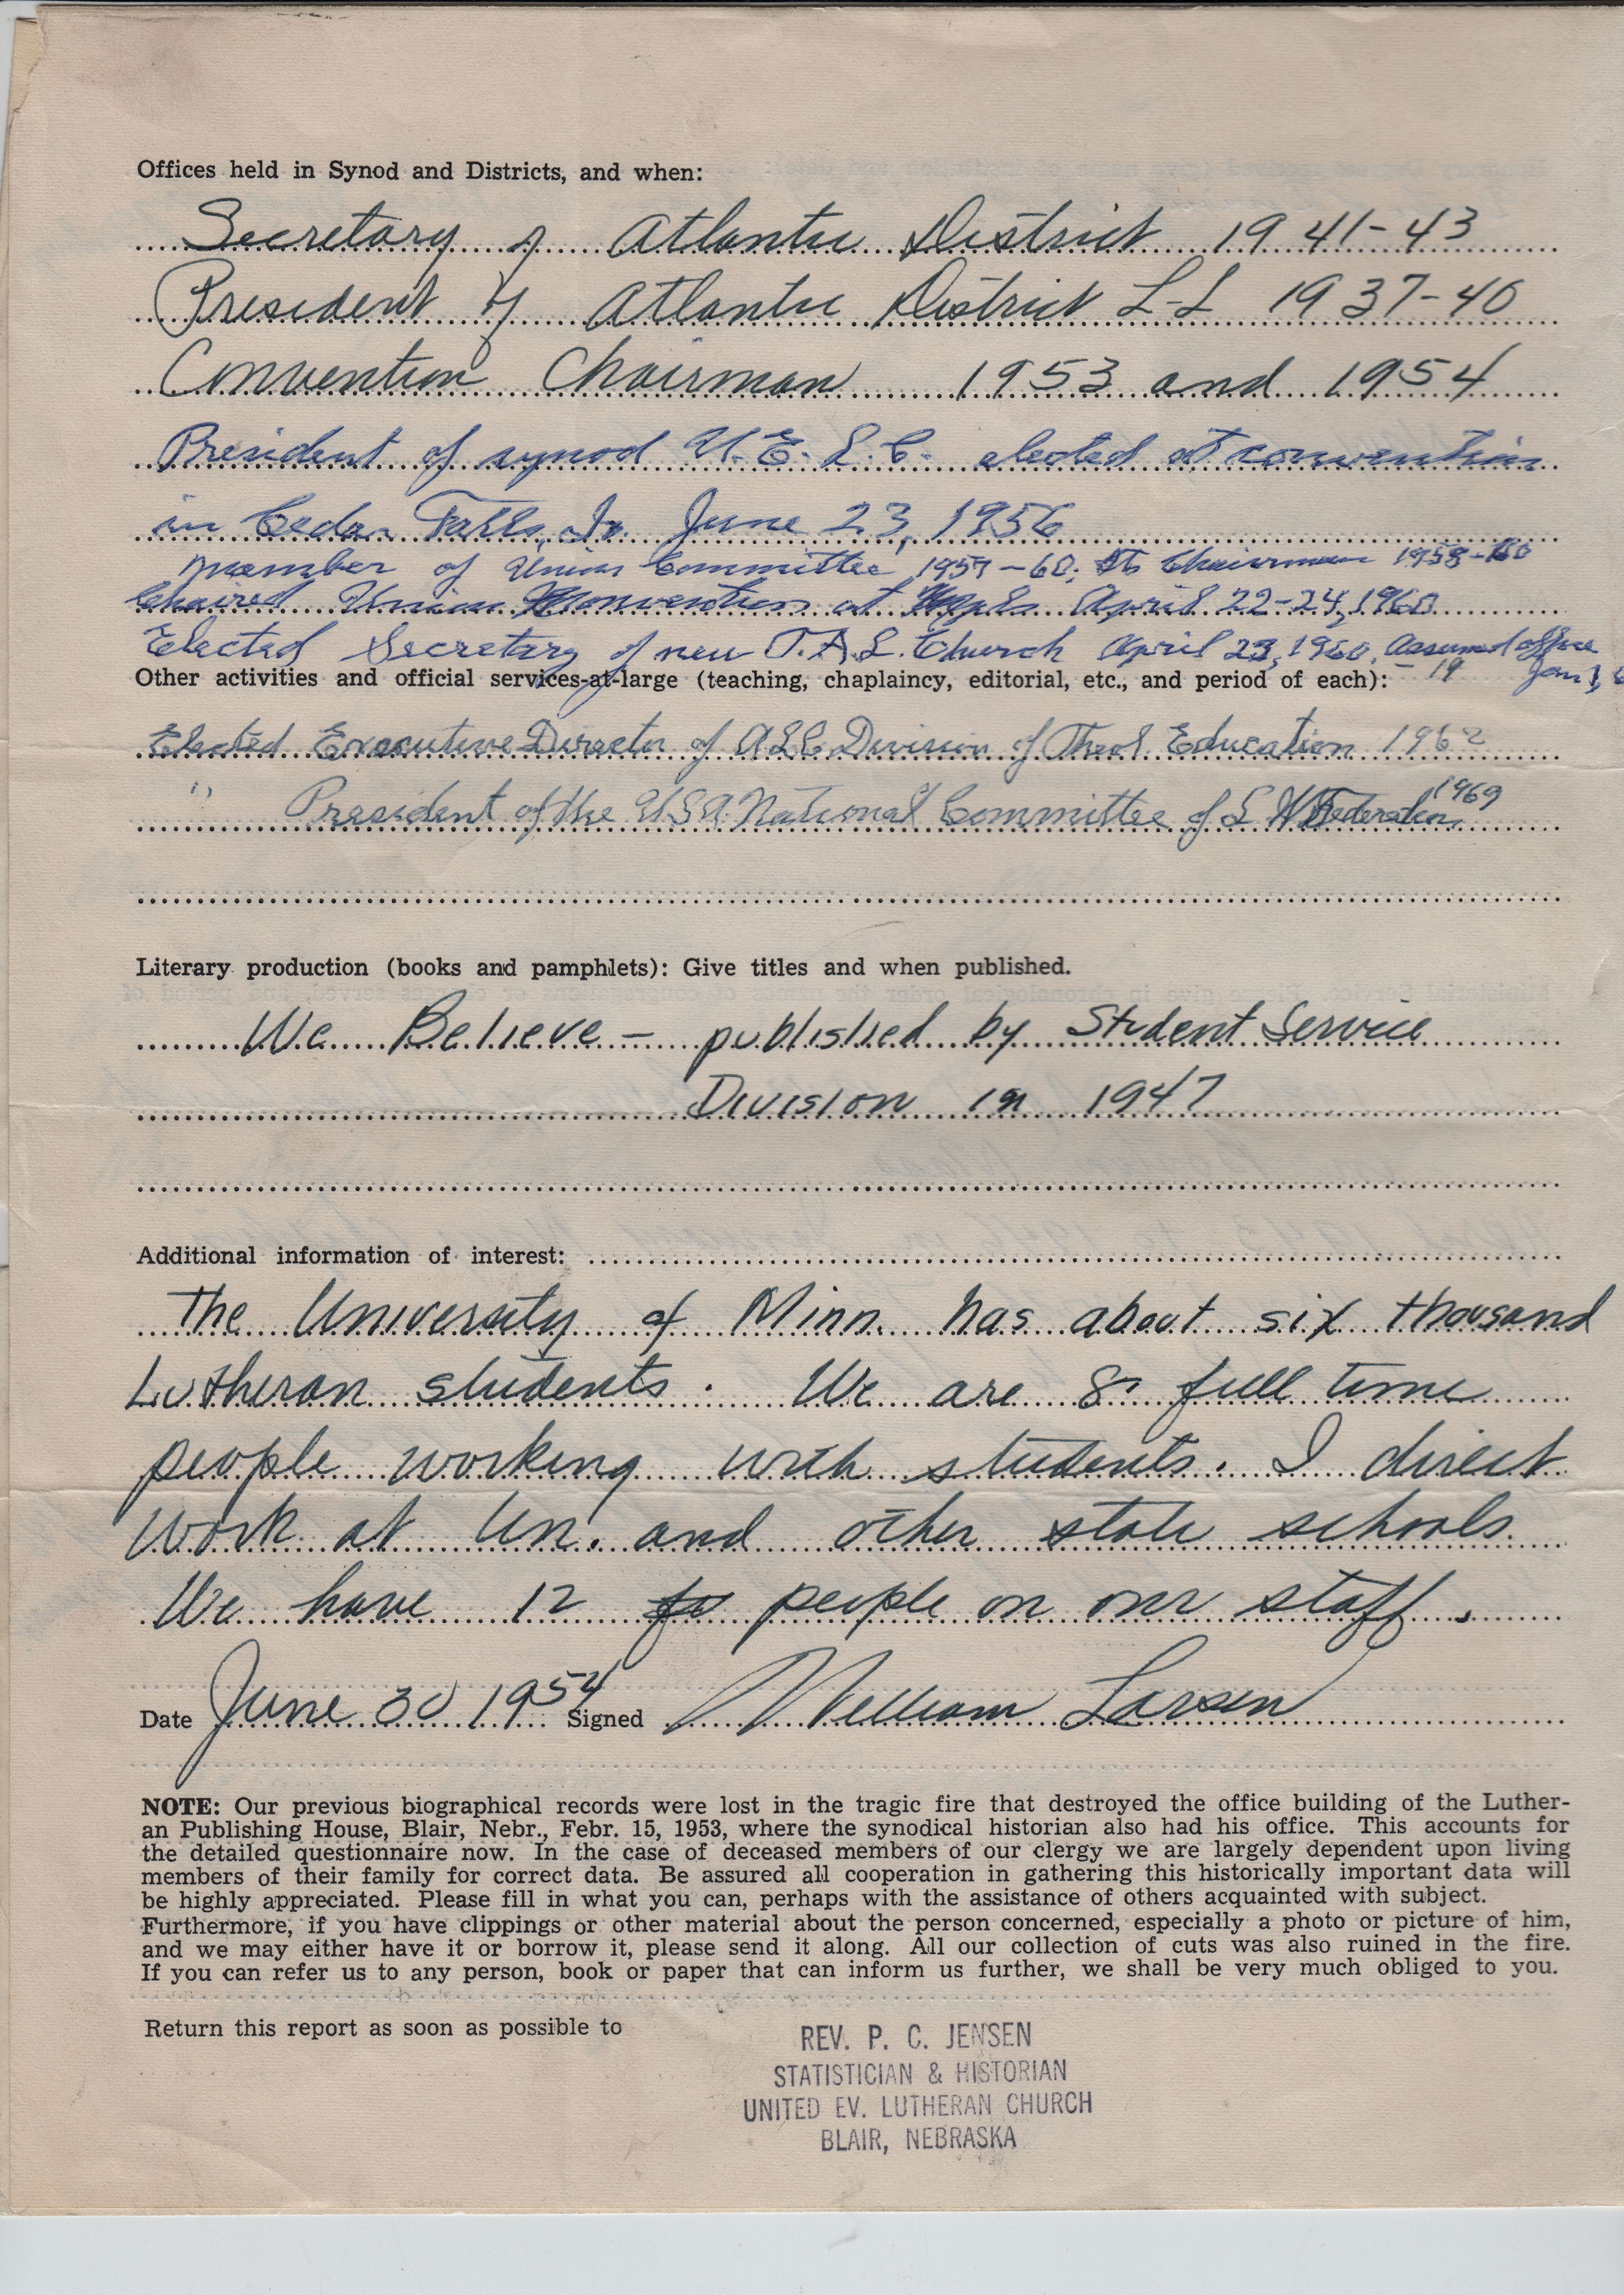 Offices held in Synod and Districts, and when:
Secretary of Atlantic District 1941-43
President of Atlantic District L-L 1937-40
Convention Chairman 1953 and 1954
President of synod U.E.L.C. elected at convention
in Cedar Falls, Ia. June 23, 1956
Member of Union Committee 1957-60; Its Chairman 1958-60
Chaired Union Convention at Mpls April 22-24, 1960
Elected Secretary of new T.A.L. Church April 23, 1960. Assumed office
Jan 1,
Other activities and official services-at-large (teaching, chaplaincy, editorial, etc., and period of each): - 19
Elected Executive Director of ALC Division of Theol. Education 1962
" President of the USA National Committee of L W Federation 1969
Literary production (books and pamphlets): Give titles and when published.
We Believe - published by Student Service
Division in 1947
Additional information of interest:
The University of Minn. has about six thousand
Lutheran students. We are 8 full time
people working with students. I direct
work at Un. and other state schools.
We have 12 people on our staff.
Date June 30 1954 Signed William Larsen
NOTE: Our previous biographical records were lost in the tragic fire that destroyed the office building of the Luther-
an Publishing House, Blair, Nebr., Febr. 15, 1953, where the synodical historian also had his office. This accounts for
the detailed questionnaire now. In the case of deceased members of our clergy we are largely dependent upon living
members of their family for correct data. Be assured all cooperation in gathering this historically important data will
be highly appreciated. Please fill in what you can, perhaps with the assistance of others acquainted with subject.
Furthermore, if you have clippings or other material about the person concerned, especially a photo or picture of him,
and we may either have it or borrow it, please send it along. All our collection of cuts was also ruined in the fire.
If you can refer us to any person, book or paper that can inform us further, we shall be very much obliged to you.
Return this report as soon as possible to
REV. P. C. JENSEN
STATISTICIAN & HISTORIAN
UNITED EV. LUTHERAN CHURCH
BLAIR, NEBRASKA